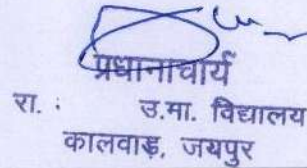 प्रधानाचार्य
रा. : उ.मा. विद्यालय
कालवाड, जयपुर